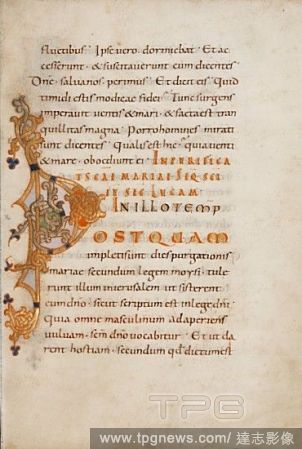 fluctibus Ipse vero dormiebat Et ac
cesserunt · & suscitaverunt eum dicentes
Dñe · salvanos perimus Et dicit eis Quid
timidi estis modicae fidei Tunc surgens
imperavit ventis & mari · & facta est tran
quillitas magna Porro homines mirati
sunt dicentes Qualis est hic · quia venti
& mare · oboediunt ei IN PURIFICA
SCAE MARIAE
LUCAM
IN ILLO TEMP
POSTQUAM
impleti sunt dies purgationis
mariae secundum legem moysi · tule
runt illum in hierusalem ut sisterent
eum dño · sicut scriptum est in lege dñi
Quia omne masculinum adaperiens
vulvam · scm dño vocabitur Et ut da
rent hostiam · secundum qd dictum est
TPG
www.tpgnews.com/達志影像